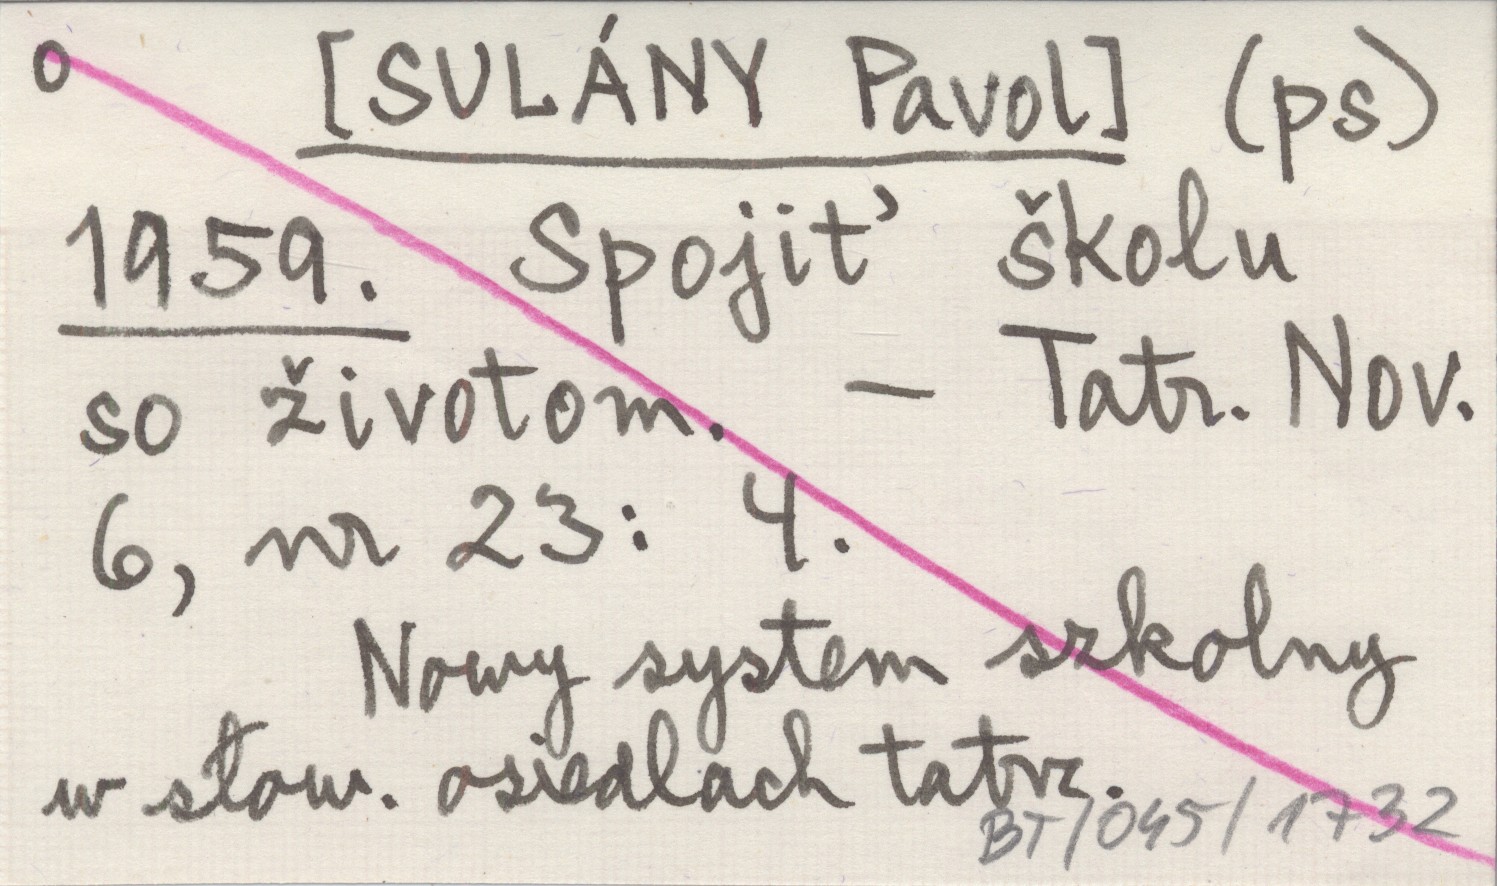 o [SULÁNY Pavol] (ps)
1959. Spojiť školu
so životom. – Tatr. Nov.
6, nr 23: 4.
Nowy system szkolny
w słow. osiedlach tatrz.
BT/045/1732